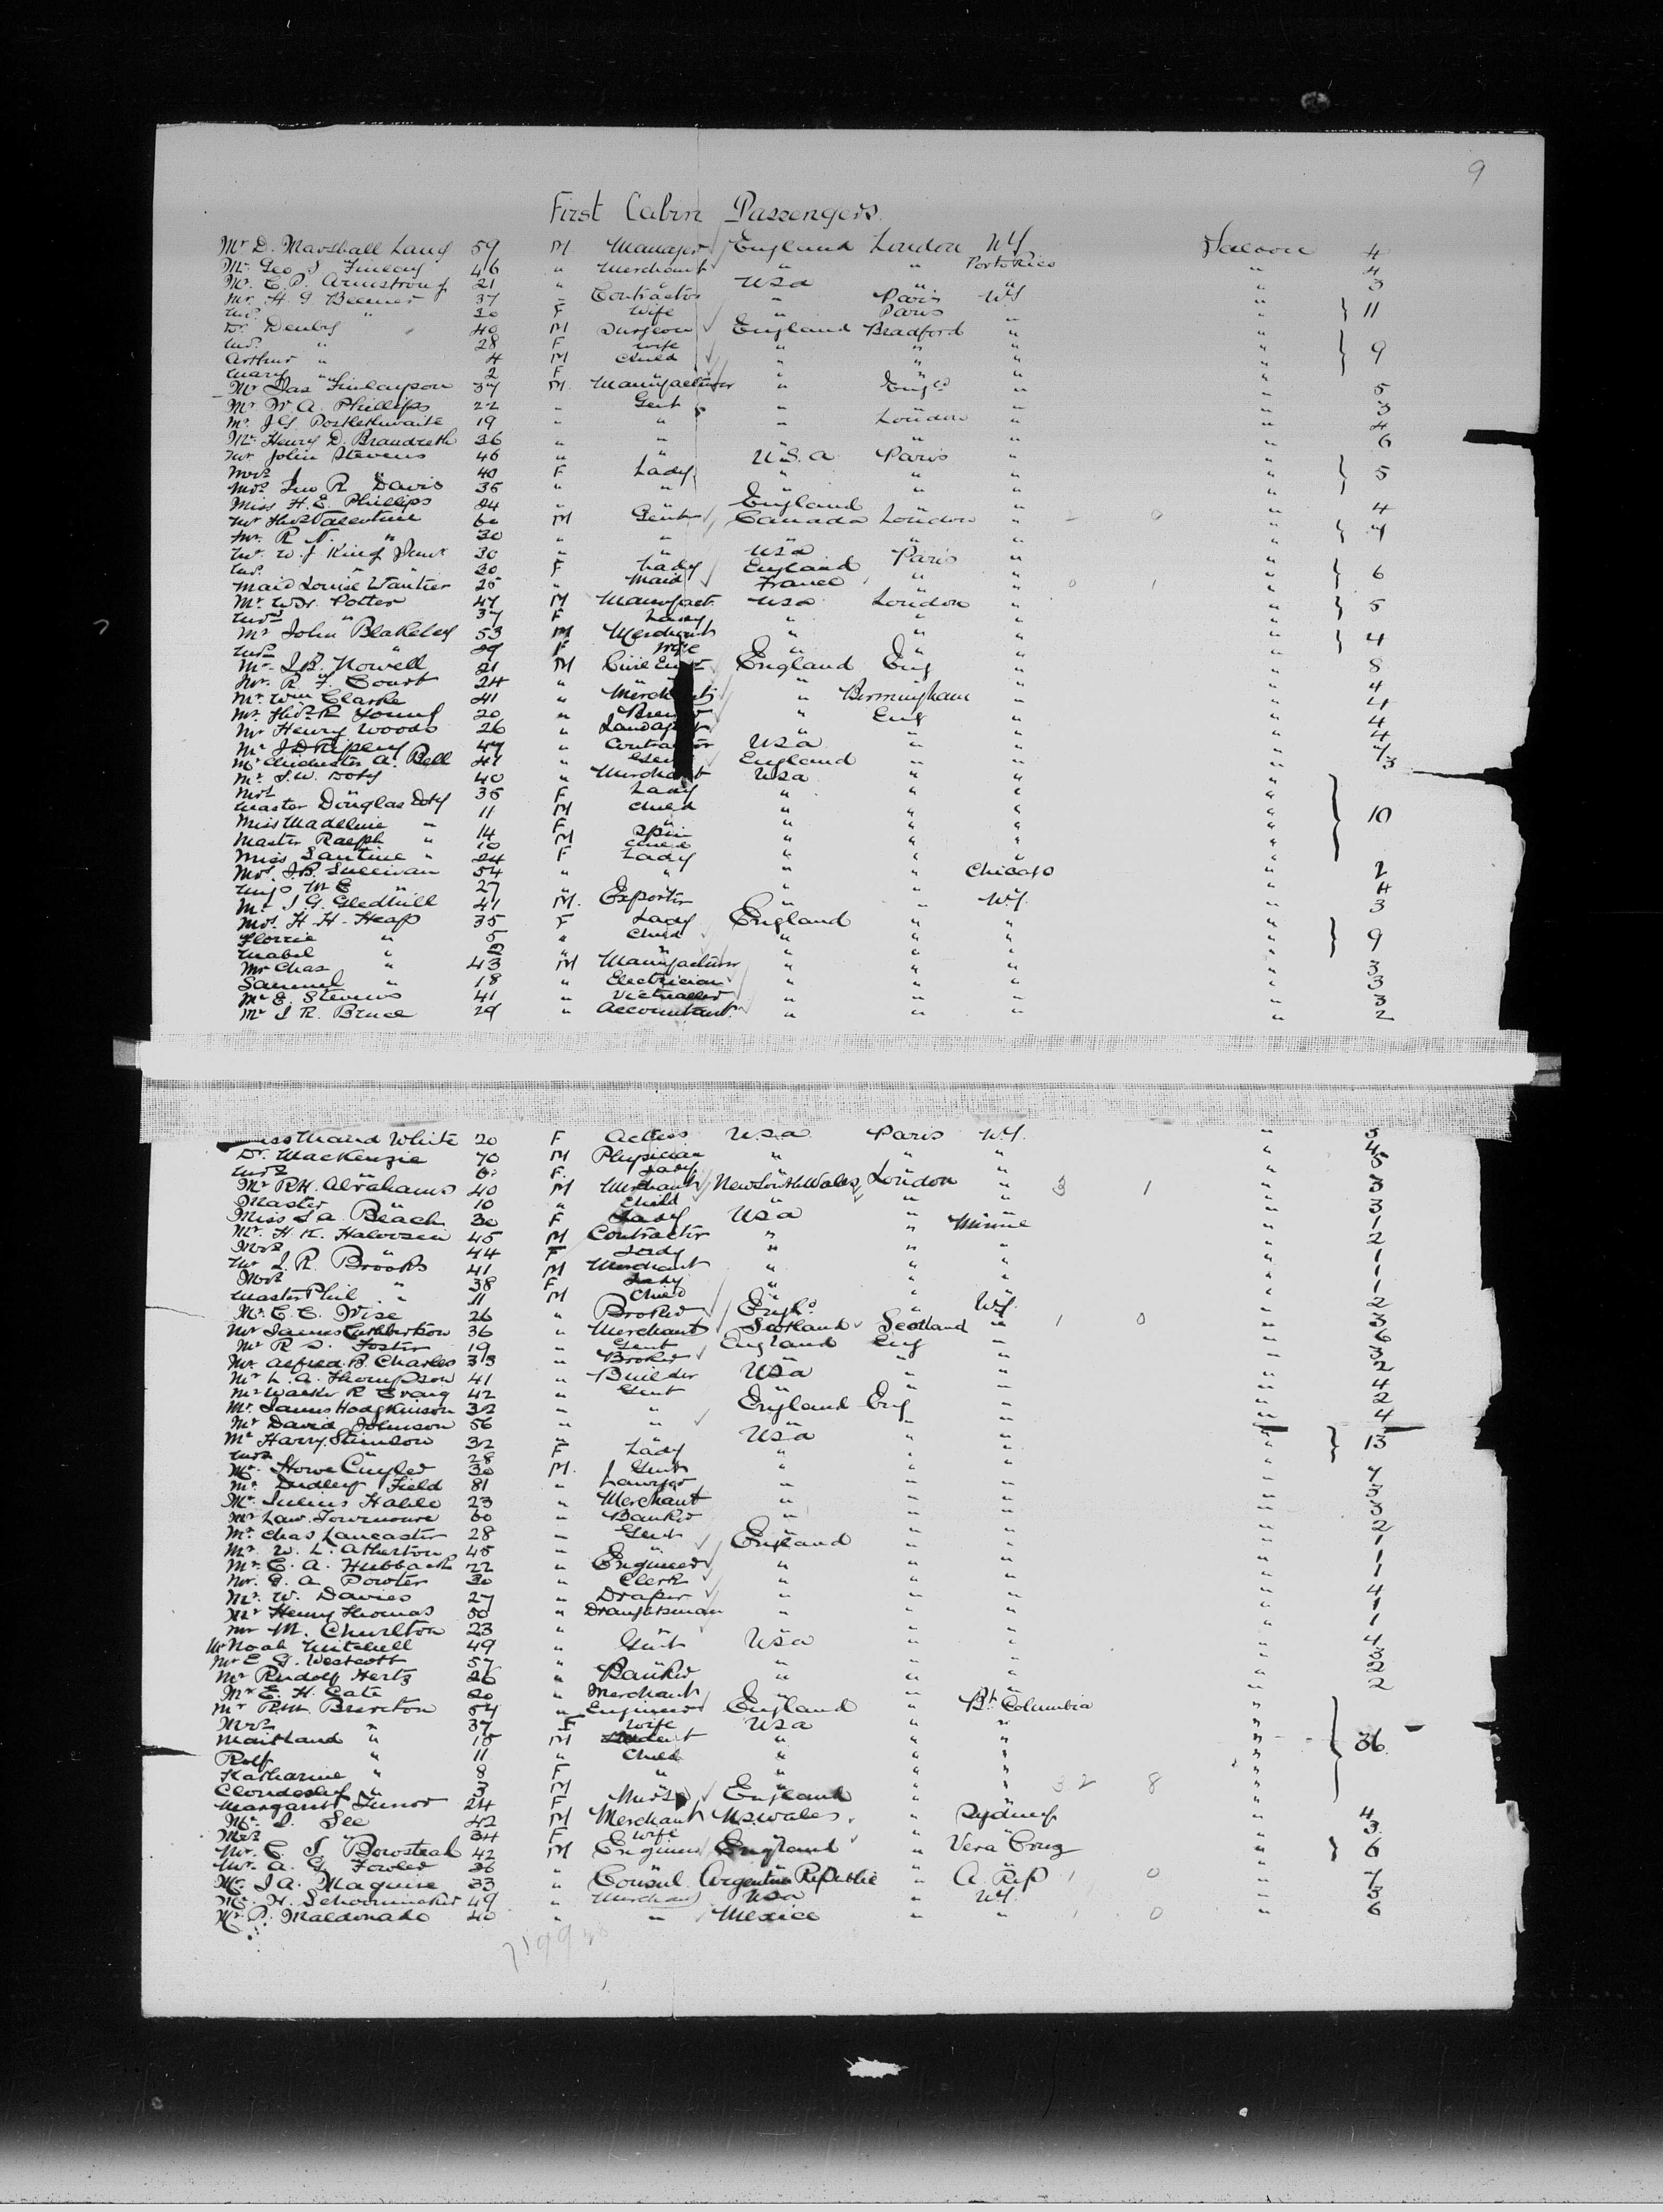 9
First Cabin Passengers.
Mr D. Marshall Lang 59 M Manager England London NY Saloon 4
Mr Geo S Finlay 46 " Merchant " " Porto Rico " 4
Mr C. P. Armstrong 21 " " USA " " " 3
Mr H. G Beemer 37 " Contractor " Paris NY " } 11
Mrs " 30 F Wife " Paris " "
Dr Denby 40 M Surgeon England Bradford " "
Mrs " 28 F Wife " " " " } 9
Arthur " 4 M Child " " " "
Mary " 2 F " " " " "
Mr Jas Finlayson 37 M. Manufacturer " Engd " " 5
Mr W. A. Phillips 22 " Gent " " " " 3
Mr J. G. Postlethwaite 19 " " " London " " 4
Mr Henry D. Brandreth 36 " " " " " " 6
Mr John Stevens 46 " " U.S.A Paris " "
Mrs " 40 F Lady " " " " } 5
Mrs Jno R Davis 35 " " " " " "
Miss H. E. Phillips 24 " " England " " " 4
Mr Thos Valentine 60 M Gent Canada London " 2 0 "
Mr R N. " 30 " " " " " " }
Mr W. J King Junr 30 " " USA Paris " "
Mrs " " 30 F Lady England " " " } 6
Maid Louise Wautier 25 " Maid France " " 0 1 "
Mr Wm Potter 47 M Manufact. USA London " " } 5
Mrs " 37 F Lady " " " "
Mr John Blakeley 53 M Merchant " " " " } 4
Mrs " 29 F Wife " " " "
Mr J. B. Nowell 21 M Civil Engr England Eng " " 8
Mr R. F. Court 24 " " " " " " 4
Mr Wm Clarke 41 " Merchant " Birmingham " " 4
Mr Thos R Young 20 " Brewer " Eng " " 4
Mr Henry Woods 26 " Landagent " " " " 4
Mr J D 47 " Contractor USA " " "
Mr Chichester A. Bell 41 " Gent England " " " 3
Mr J. W. Doty 40 " Merchant USA " " "
Mrs " 35 F Lady " " " "
Master Douglas Doty 11 M Child " " " " } 10
Miss Madeline " 14 F Spin " " " "
Master Ralph " 10 M Child " " " "
Miss " 24 F Lady " " " "
Mrs J. B. Sullivan 54 " " " " Chicago " 2
" 27 " " " " " " 4
Mr J. G. Gledhill 41 M. Exporter " " NY. " 3
Mrs H. H. Heap 35 F Lady England " " "
Florrie " 5 " Child " " " " } 9
Mabel " 2 " " " " " "
Mr Chas " 43 M Manufacturer " " " " 3
Samuel " 18 " Electrician " " " " 3
Mr E. Stevens 41 " Victualler " " " " 3
Mr J R. Bruce 29 " Accountant " " " " 2
Miss Maud White 20 F Actress USA Paris NY. " 3
Dr. Mackenzie 70 M Physician " " " " 4
Mrs " F. Lady " " " " 5
Mr R. H. Abrahams 40 M Merchant New South Wales London " 3 1 " 3
Master " 10 " Child " " " " 3
Miss S. A. Beach 30 F Lady USA " Minne " 1
Mr. H. K. Halvorsen 45 M Contractor " " " " 2
Mrs " 44 F Lady " " " "
Mr J. R. Brooks 41 M Merchant " " " " 1
Mrs " 38 F Lady " " " " 1
Master Phil " 11 M Child " " " " 1
Mr. C. C. Wise 26 " Broker Engld " NY. " 2
Mr James Cuthbertson 36 " Merchant Scotland Scotland " 1 0 " 3
Mr R. S. Foster 19 " Gent England Eng " " 6
Mr Alfred B. Charles 33 " Broker " " " " 3
Mr L. A. Thompson 41 " Builder USA " " " 2
Mr Walter R Craig 42 " Gent " " " " 4
Mr. James Hodgkinson 32 " " England Eng " " 2
Mr David Johnson 56 " " " " " " 4
Mr Harry Stimson 32 " " USA " " " } 13
Mrs " 28 F Lady " " " "
Mr. Howe Cuyler 30 M. Gent " " " " 7
Mr. Dudley Field 81 " Lawyer " " " " 3
Mr. Julius Halle 23 " Merchant " " " " 3
Mr Law. Tournoure 60 " Banker " " " " 2
Mr. Chas Lancaster 28 " Gent England " " " 1
Mr. W. L. Atherton 45 " " " " " " 1
Mr. C. A. Hubback 22 " Engineer " " " " 1
Mr. G. A. Powter 30 " Clerk " " " " 4
Mr. W. Davies 27 " Draper " " " " 1
Mr Henry Thomas 50 " Draughtsman " " " " 1
Mr M. Churlton 23 " " " " " " 4
Mr Noah Mitchell 49 " Gent USA " " " 3
Mr E G. Westcott 57 " " " " " " 2
Mr Rudolf Hertz 26 " Banker " " " " 2
Mr E. H. Cate 20 " Merchant " " " "
Mr R. M. Brereton 54 " Engineer England " Bt. Columbia "
Mrs " 37 F Wife USA " " "
Maitland " 15 M Student " " " " } 36
Rolf " 11 " Child " " " "
Katharine " 8 F " " " " "
Cloudesley " 3 M " " " " 32 8 "
Margaret Junor 24 F Nurse England " " "
Mr. J. See 42 M Merchant N.S. Wales. " Sydney " 4
Mrs " 34 F Wife " " " " 3.
Mr. C. J. Bowstead 42 M Engineer England " Vera Cruz " } 6
Mr. A. G. Fowler 26 " " " " " "
Mr. J A. Maguire 33 " Consul Argentine Republic " A. Rep 1 0 " 7
Mr. H. Schoonmaker 49 " Merchant USA " NY. " 3
Mr. P. Maldonado 40 " " Mexico " " 1 0 " 6